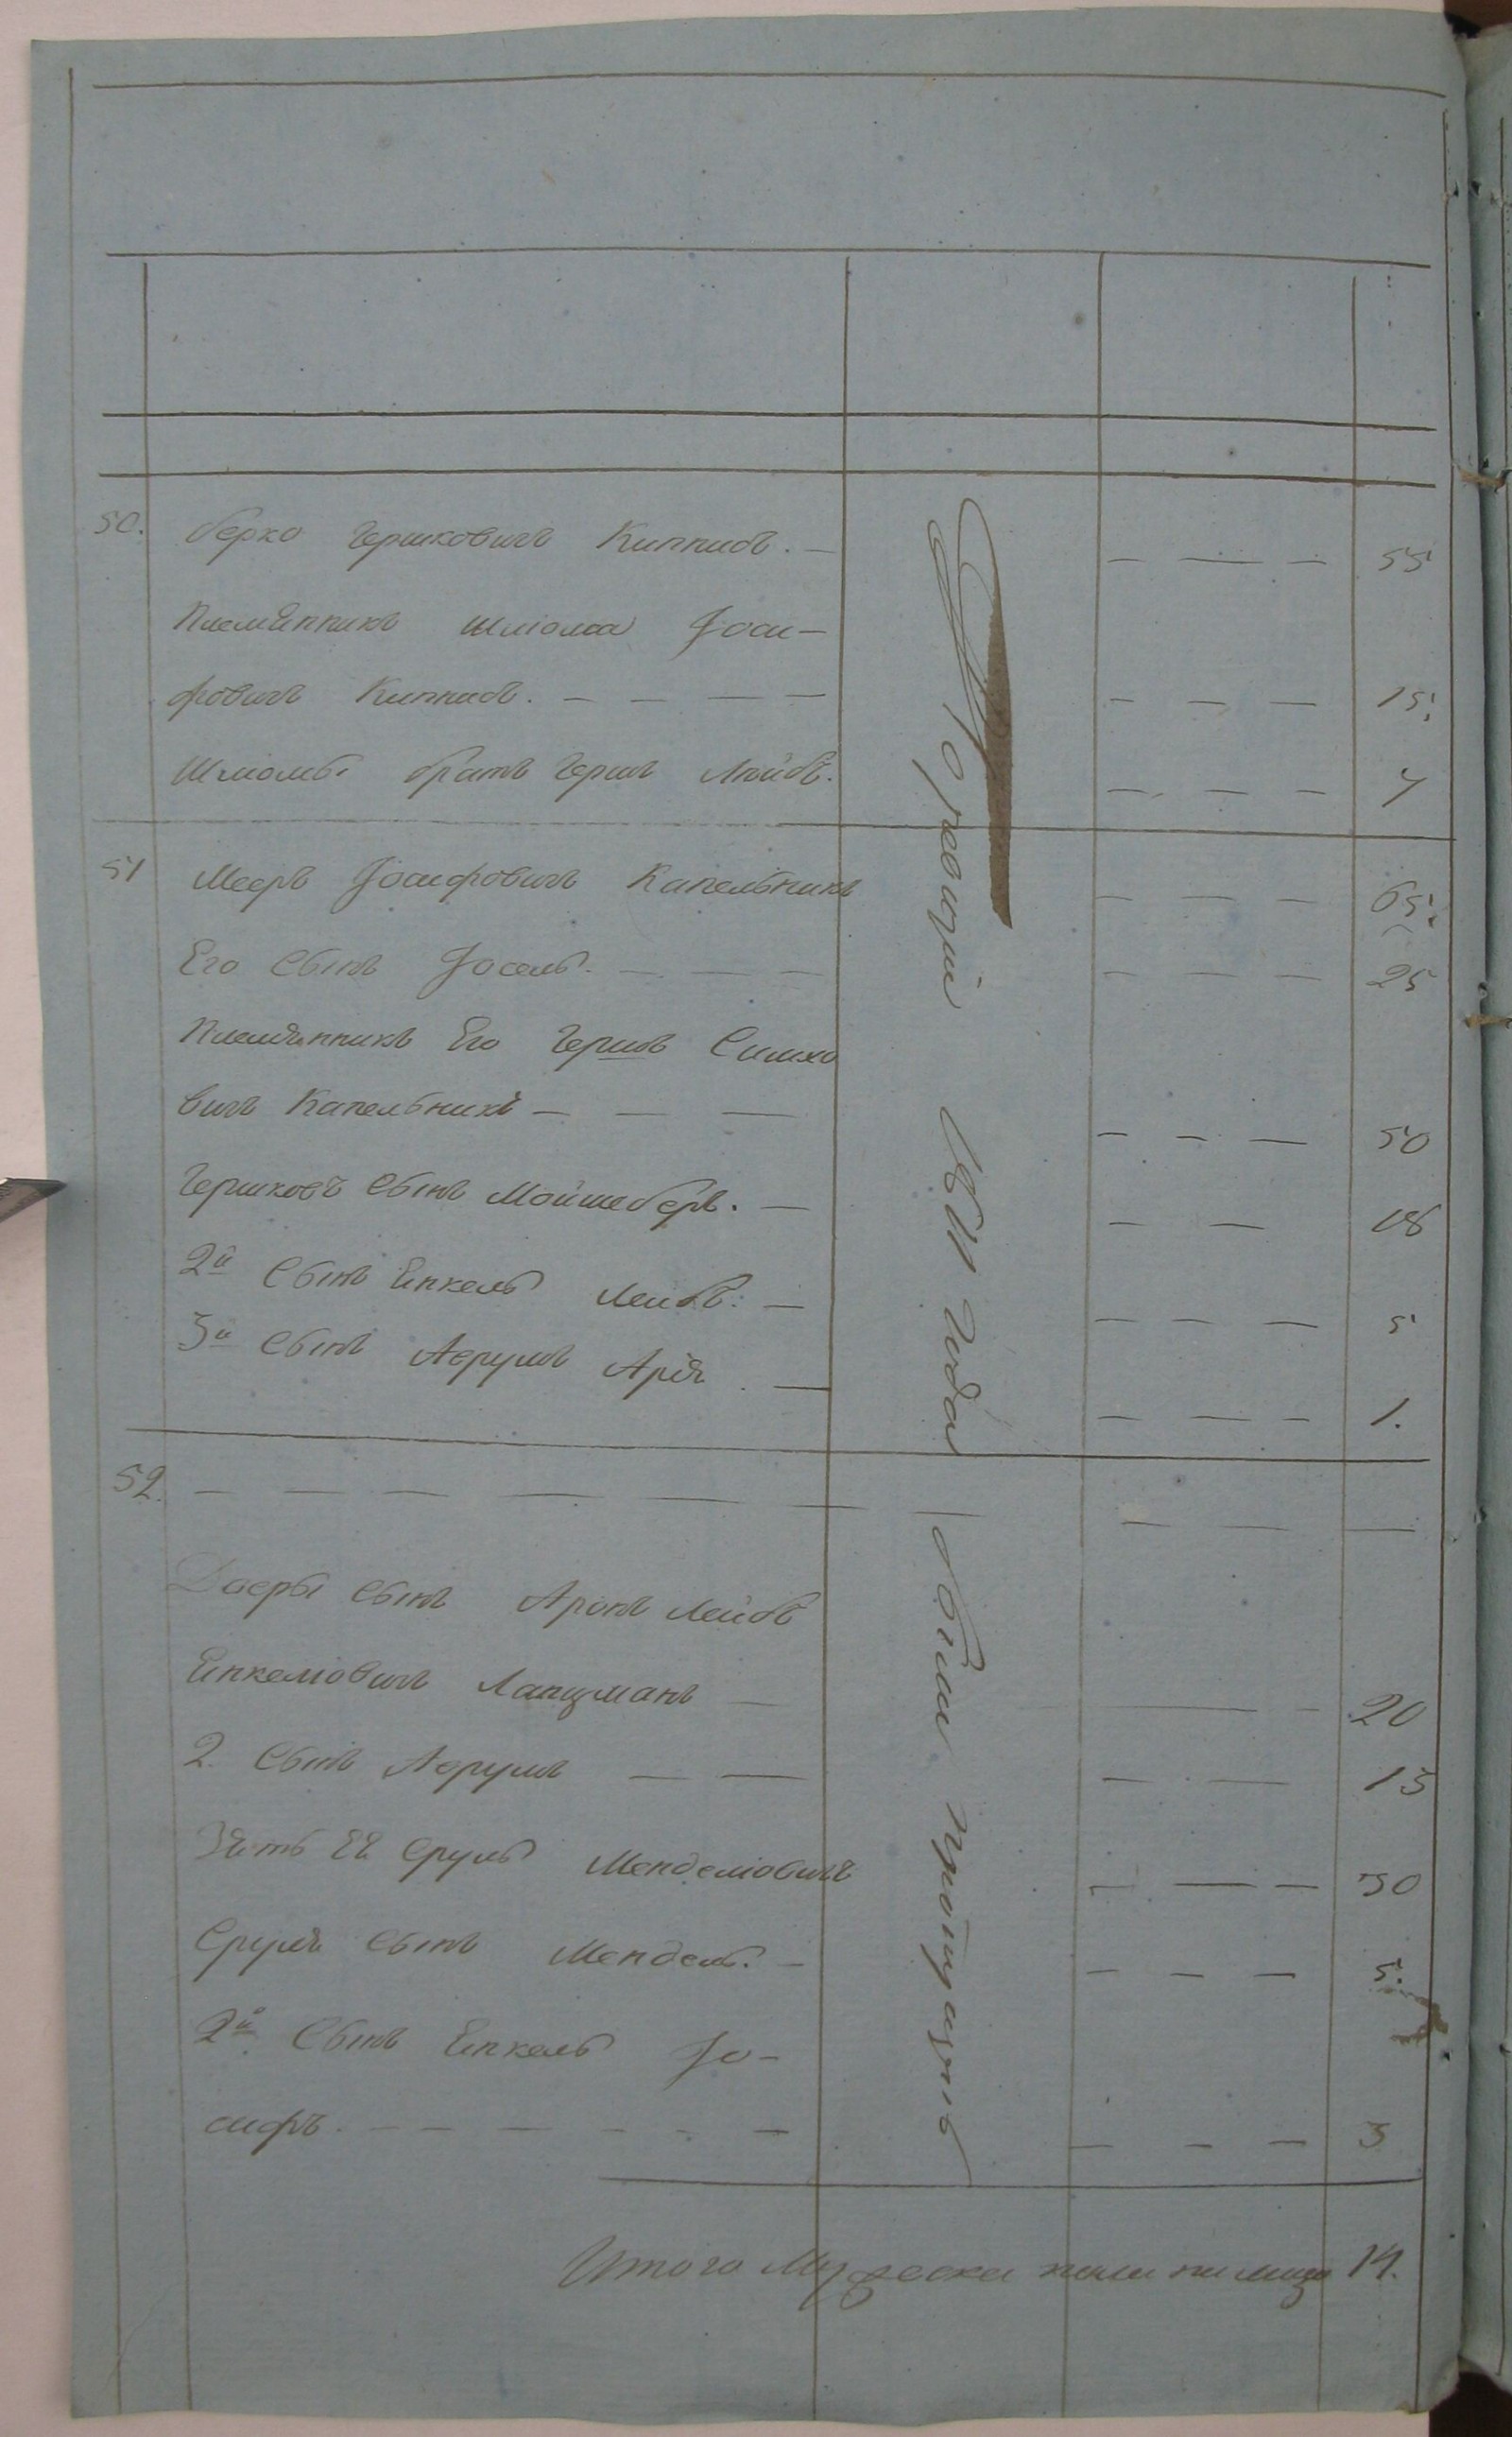 50. Берко Гершковичъ Кипнисъ. — — — — 55
Племянникъ Шліома Іоси-
фовичъ Кипнисъ. — — — — — — — 15.
Шліомы братъ Гершъ Лейбъ. — — — 7
51 Мееръ Іосифовичъ Капельникъ — — — 65.
Его сынъ Іосель. — — — — — — 25
Племянникъ Его Гершъ Симхо
вичъ Капельникъ — — — — — — 50
Гершковъ сынъ Мойшеберъ. — — — 18
2й сынъ Янкель Лейбъ. — — — — 5
3й сынъ Аврумъ Арія. — — — — 1.
52. — — — — — — — — —
сынъ Аронъ Лейбъ
Янкеліовичъ Ланцманъ — — — 20
2. сынъ Аврумъ — — — — 13
Зять Ея Сруль Менделіовичъ — — — 30
Сруля сынъ Мендель. — — — — 5.
2й сынъ Янкель Іо-
сифъ. — — — — — — — — — 3
По ревизіи 1811 года
Итого Мужеска пола на лицо 14.